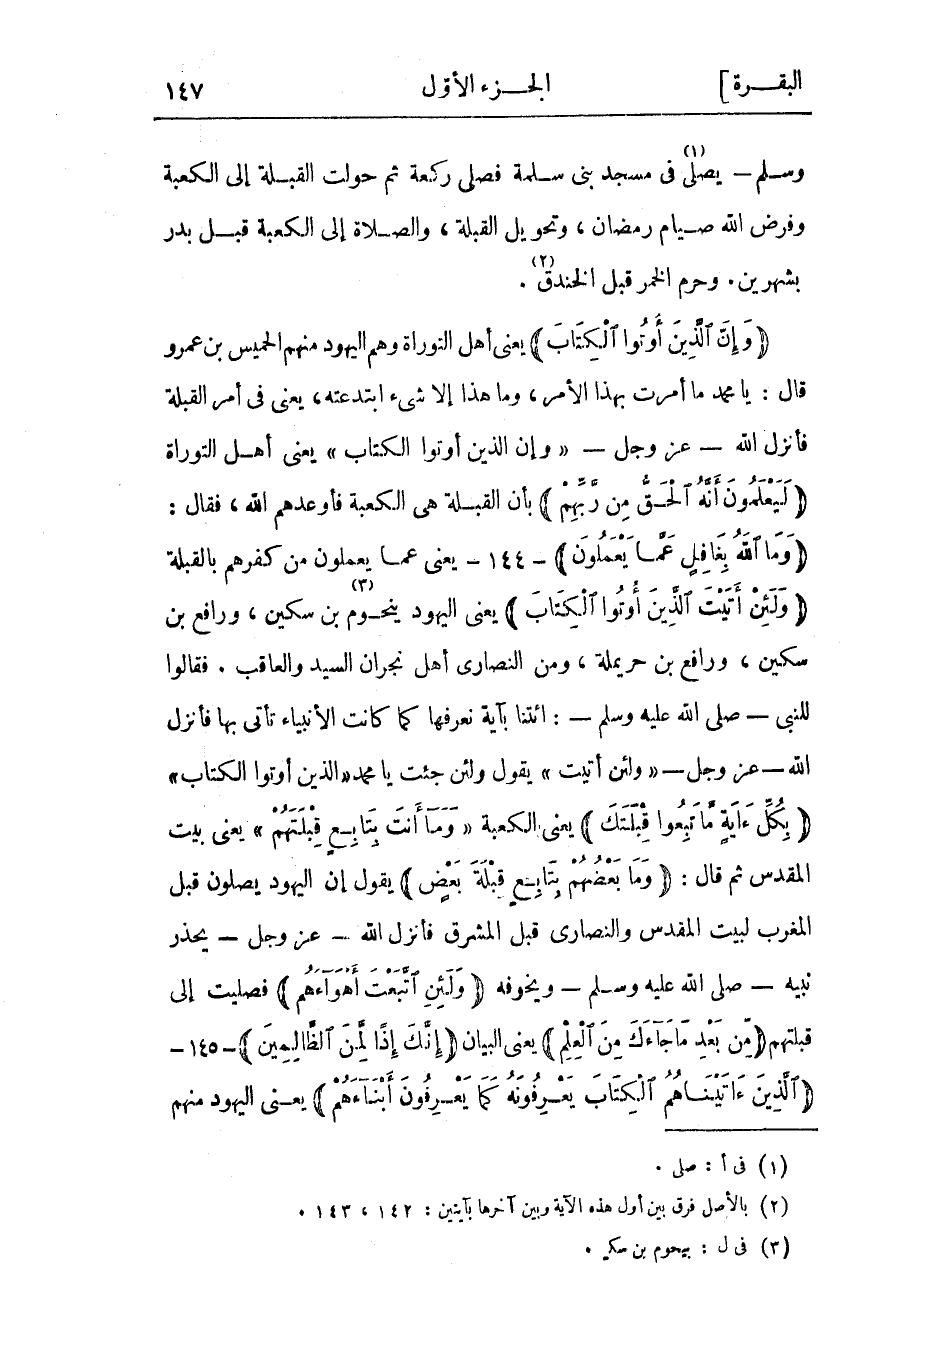 البقـــرة]
الجـــزء الأوّل
١٤٧
وسـلم — يصلى(١) فى مسجد بنى سـلمة فصلى ركعة ثم حولت القبـلة إلى الكعبة
وفرض الله صـيام رمضان ، وتحويل القبلة ، والصـلاة إلى الكعبة قبـل بدر
بشهرين . وحرم الخمر قبل الخندق(٢) .
﴿ وَإِنَّ ٱلَّذِينَ أُوتُوا ٱلْكِتَابَ ﴾ يعنى أهل التوراة وهم اليهود منهم الحميس بن عمرو
قال : يا محمد ما أمرت بهذا الأمر ، وما هذا إلا شىء ابتدعته ، يعنى فى أمر القبلة
فأنزل الله — عز وجل — « وإن الذين أوتوا الكتاب » يعنى أهـل التوراة
﴿ لَيَعْلَمُونَ أَنَّهُ ٱلْحَقُّ مِن رَّبِّهِمْ ﴾ بأن القبـلة هى الكعبة فأوعدهم الله ، فقال :
﴿ وَمَا ٱللَّهُ بِغَافِلٍ عَمَّا يَعْمَلُونَ ﴾ - ١٤٤ - يعنى عمـا يعملون من كفرهم بالقبلة
﴿ وَلَئِنْ أَتَيْتَ ٱلَّذِينَ أُوتُوا ٱلْكِتَابَ ﴾ يعنى اليهود ينحـوم(٣) بن سكين ، ورافع بن
سكين ، ورافع بن حريملة ، ومن النصارى أهل نجران السيد والعاقب . فقالوا
للنبى — صلى الله عليه وسلم — : ائتنا بآية نعرفها كما كانت الأنبياء تأتى بها فأنزل
الله — عز وجل — « ولئن أتيت » يقول ولئن جئت يا محمد «الذين أوتوا الكتاب»
﴿ بِكُلِّ ءَايَةٍ مَّا تَبِعُوا قِبْلَتَكَ ﴾ يعنى الكعبة « وَمَآ أَنتَ بِتَابِـعٍ قِبْلَتَهُمْ » يعنى بيت
المقدس ثم قال : ﴿ وَمَا بَعْضُهُمْ بِتَابِـعٍ قِبْلَةَ بَعْضٍ ﴾ يقول إن اليهود يصلون قبل
المغرب لبيت المقدس والنصارى قبل المشرق فأنزل الله — عز وجل — يحذر
نبيه — صلى الله عليه وسـلم — ويخوفه ﴿ وَلَئِنِ ٱتَّبَعْتَ أَهْوَآءَهُم ﴾ فصليت إلى
قبلتهم ﴿ مِّن بَعْدِ مَا جَآءَكَ مِنَ ٱلْعِلْمِ ﴾ يعنى البيان ﴿ إِنَّكَ إِذًا لَّمِنَ ٱلظَّالِمِينَ ﴾ - ١٤٥ -
﴿ ٱلَّذِينَ ءَاتَيْنَـاهُمُ ٱلْكِتَابَ يَعْـرِفُونَهُ كَمَا يَعْـرِفُونَ أَبْنَآءَهُمْ ﴾ يعـنى اليهود منهم
(١) فى أ : صلى .
(٢) بالأصل فرق بين أول هذه الآية وبين آخرها بآيتين : ١٤٢ ، ١٤٣ .
(٣) فى ل : بيحوم بن سكي .